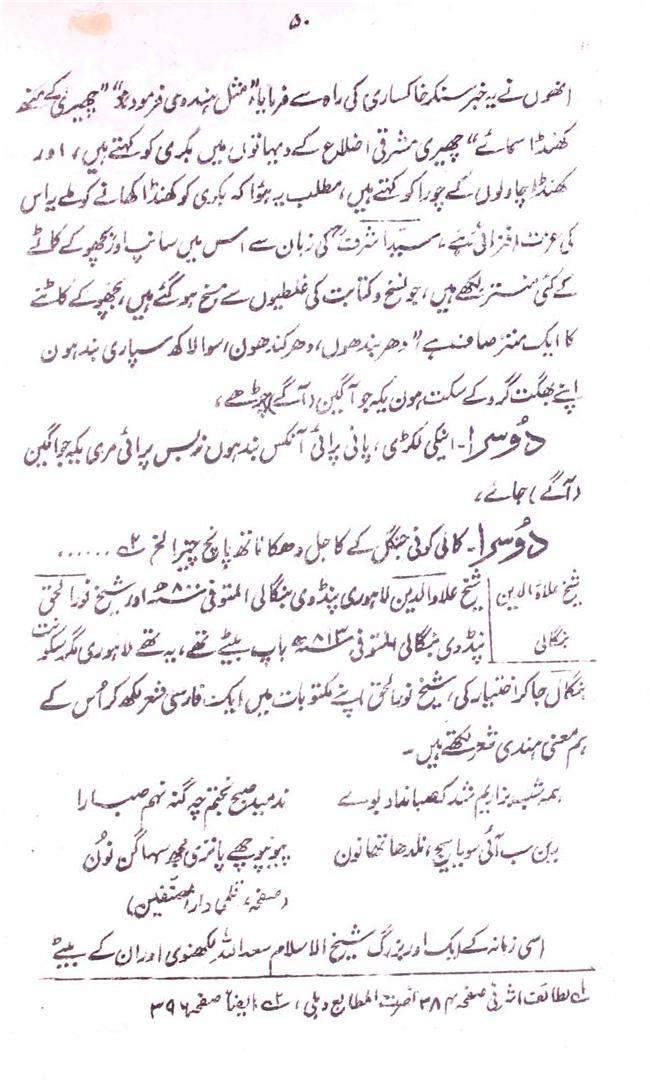 ۵۰
انھوں نے یہ خبر سنکر خاکساری کی راہ سے فرمایا، "مثل ہندوی فرمودہ" "چھیری کے منھ
کھنڈا سمائے" چھیری مشرقی اضلاع کے دیہاتوں میں بکری کو کہتے ہیں، اور
کھنڈا چاولوں کے چورا کو کہتے ہیں، مطلب یہ ہوا کہ بکری کو کھنڈا کھانے کو ملے یہ اس
کی عزت افزائی ہے، سید اشرفؒ کی زبان سے اس میں سانپ اور بچھو کے کاٹے
کے کئی منتر لکھے ہیں، جو نسخ و کتابت کی غلطیوں سے مسخ ہو گئے ہیں، بچھو کے کاٹنے
کا ایک منتر صاف ہے، "دھر بندھوں، دھر کندھون، سوا لاکھ سپاری بند ہون
اپنے بھگت گرو کے سکت ہون یکہ جو آگین (آگے) چڑھے،
دُوسرا۔ انیکی لکڑی، پانی پرائی آنکس بند ہوں نربس پرائی مری یکہ جو اگین
(آگے) جائے،
دُوسرا۔ کالی کوئی جنگل کے کاجل دھکا ناتھ پانچ چترا الخ ۲؎ ......
شیخ علاؤ الدین بنگالی
شیخ علاؤ الدین لاہوری پنڈوی بنگالی المتوفی ۸۰۰ھ اور شیخ نور الحق
پنڈوی بنگالی المتوفی ۸۱۳ھ باپ بیٹے تھے، یہ تھے لاہوری مگر سکونت
بنگال جا کر اختیار کی، شیخ نور الحق اپنے مکتوبات میں ایک فارسی شعر لکھ کر اُس کے
ہم معنی ہندی شعر لکھتے ہیں۔
ہمہ شب بزاریم شد کہ صبا نداد بوے ندمید صبح بختم چہ گنہ نہم صبا را
رین سب آئی سویا سیج، نلدھا تھا نون پیو پوچھے باتری مجھ سہاگن نون
(صفحہ، قلمی دار المصنفین)
اسی زمانہ کے ایک اور بزرگ شیخ الاسلام سعد اللہ لکھنوی اور ان کے بیٹے
۱؎ لطائف اشرفی صفحہ ۳۸۴ نصرت المطابع دہلی، ۲؎ ایضاً صفحہ ۳۹۶